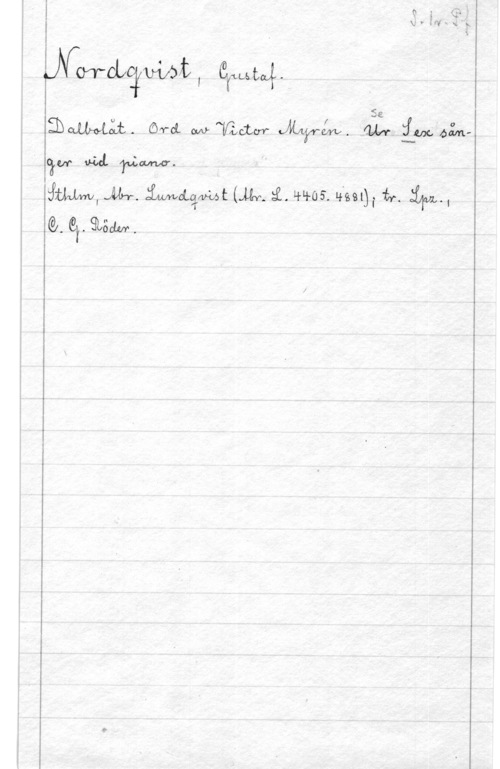 S. tr. Pf
Nordqvist, Gustaf.
Dalbolåt. Ord av Victor Myrén. Ur Sex sån-
Se
ger vid piano.
Sthlm, Abr. Lundqvist (Abr. L. 4405. 4881); tr. Lpz.,
C. G. Röder.